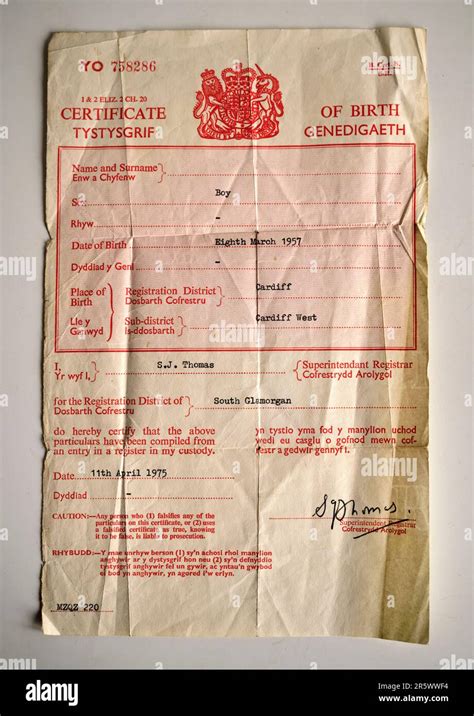 YO 758286
1 & 2 ELIZ. 2 CH. 20
CERTIFICATE OF BIRTH
TYSTYSGRIF GENEDIGAETH
Name and Surname
Enw a Chyfenw
Sex Boy
Rhyw -
Date of Birth Eighth March 1957
Dyddiad y Geni -
Place of Birth Registration District Cardiff
Dosbarth Cofrestru
Lle y Ganwyd Sub-district Cardiff West
Is-ddosbarth
I, S.J. Thomas Superintendent Registrar
Yr wyf i, Cofrestrydd Arolygol
for the Registration District of South Glamorgan
Dosbarth Cofrestru
do hereby certify that the above
particulars have been compiled from
an entry in a register in my custody.
yn tystio yma fod y manylion uchod
wedi eu casglu o gofnod mewn cof-
restr a gedwir gennyf i.
Date 11th April 1975
Dyddiad -
CAUTION:—Any person who (1) falsifies any of the
particulars on this certificate, or (2) uses
a falsified certificate as true, knowing
it to be false, is liable to prosecution.
S J Thomas
Superintendent Registrar
Cofrestrydd Arolygol
RHYBUDD:—Y mae unrhyw berson (1) sy'n achosi rhoi manylion
anghywir ar y dystysgrif hon neu (2) sy'n defnyddio
tystysgrif anghywir fel un gywir, ac yntau'n gwybod
ei bod yn anghywir, yn agored i'w erlyn.
MZQZ 220
alamy
Image ID: 2R5WWF4
www.alamy.com